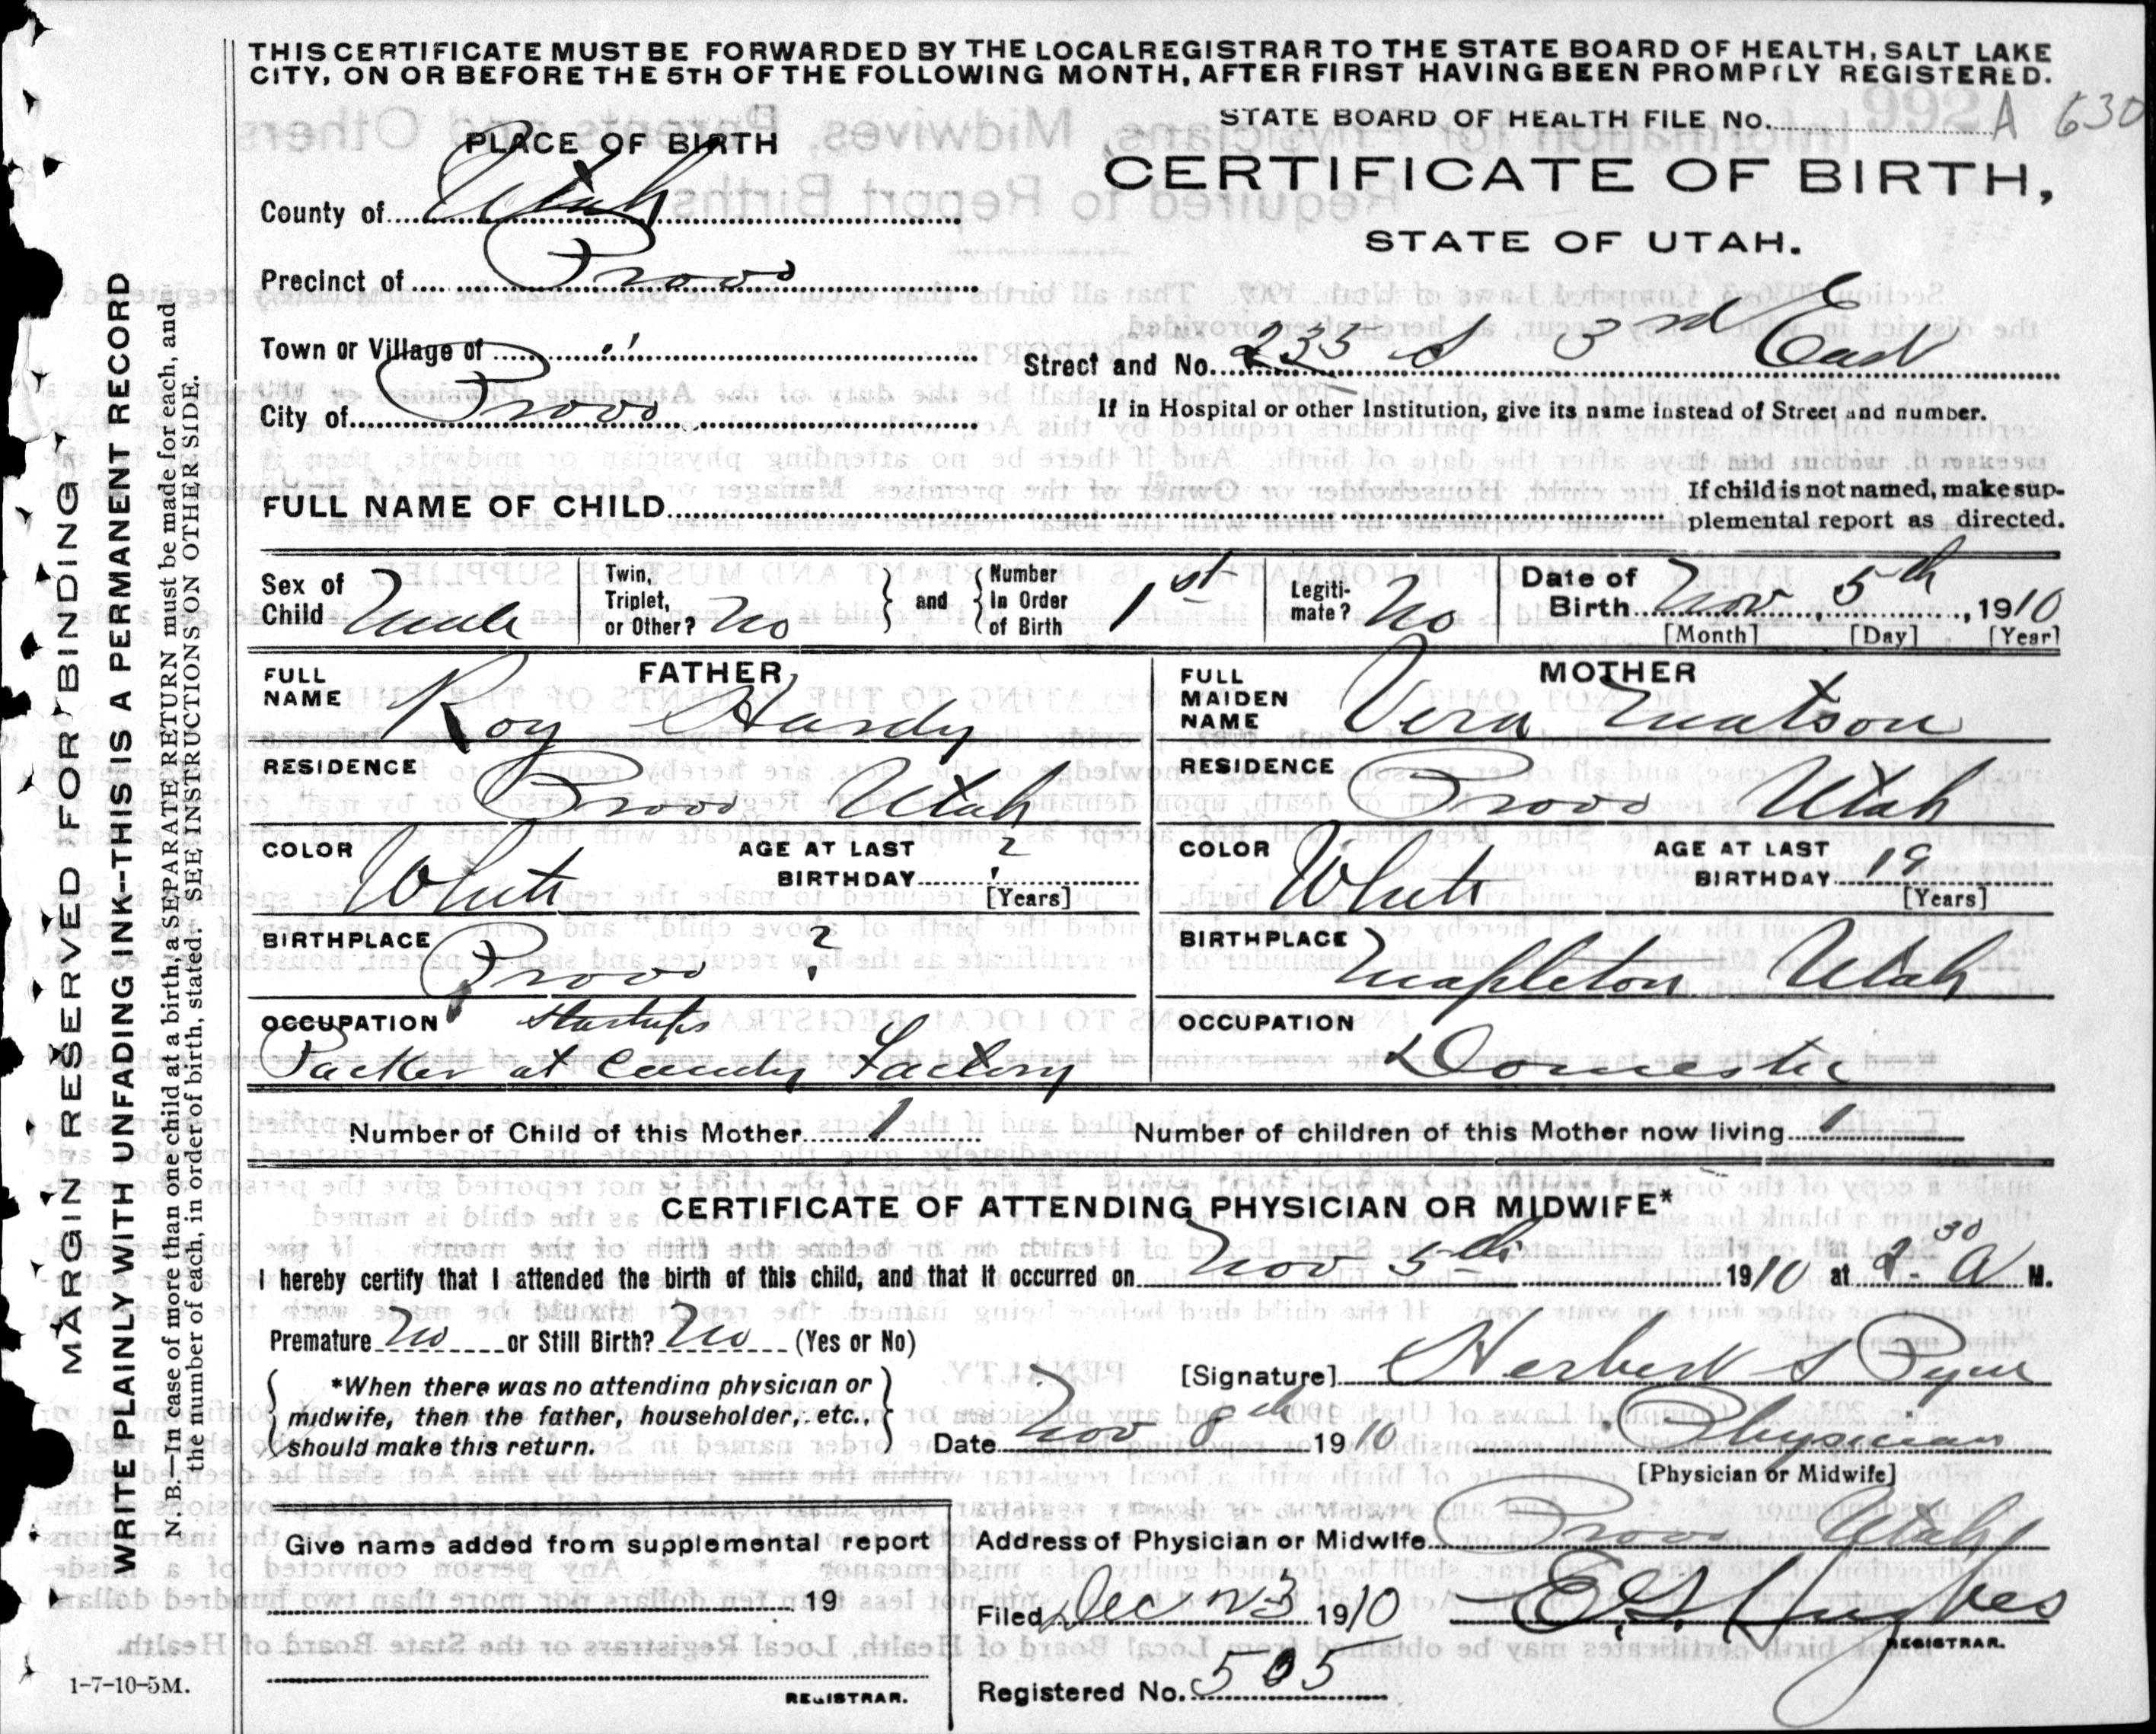 THIS CERTIFICATE MUST BE FORWARDED BY THE LOCAL REGISTRAR TO THE STATE BOARD OF HEALTH, SALT LAKE
CITY, ON OR BEFORE THE 5TH OF THE FOLLOWING MONTH, AFTER FIRST HAVING BEEN PROMPTLY REGISTERED.
STATE BOARD OF HEALTH FILE No. A 630
PLACE OF BIRTH
CERTIFICATE OF BIRTH,
STATE OF UTAH.
County of Utah
Precinct of Provo
Town or Village of "
Street and No. 235 S 3rd East
City of Provo
If in Hospital or other Institution, give its name instead of Street and number.
FULL NAME OF CHILD
If child is not named, make sup-
plemental report as directed.
Sex of Child Male
Twin, Triplet, or Other? No
and
Number In Order of Birth 1st
Legiti-mate? No
Date of Birth Nov 5th, 1910
[Month] [Day] [Year]
FATHER
FULL NAME Roy Hardy
RESIDENCE Provo Utah
COLOR White
AGE AT LAST BIRTHDAY ?
[Years]
BIRTHPLACE Provo ?
OCCUPATION Startups
Packer at Candy Factory
MOTHER
FULL MAIDEN NAME Vera Matson
RESIDENCE Provo Utah
COLOR White
AGE AT LAST BIRTHDAY 19
[Years]
BIRTHPLACE Mapleton Utah
OCCUPATION
Domestic
Number of Child of this Mother 1
Number of children of this Mother now living 1
CERTIFICATE OF ATTENDING PHYSICIAN OR MIDWIFE*
I hereby certify that I attended the birth of this child, and that it occurred on Nov 5th 1910 at 30 A M.
Premature No or Still Birth? No (Yes or No)
[Signature] Herbert S Pyne
*When there was no attending physician or
midwife, then the father, householder, etc.,
should make this return.
Date Nov 8th 1910
Physician
[Physician or Midwife]
Address of Physician or Midwife Provo Utah
Give name added from supplemental report
19
REGISTRAR.
Filed Dec 23 1910
E. G. Hughes
REGISTRAR.
Registered No. 505
1-7-10-5M.
MARGIN RESERVED FOR BINDING
WRITE PLAINLY WITH UNFADING INK--THIS IS A PERMANENT RECORD
N. B.—In case of more than one child at a birth, a SEPARATE RETURN must be made for each, and
the number of each, in order of birth, stated. SEE INSTRUCTIONS ON OTHER SIDE.